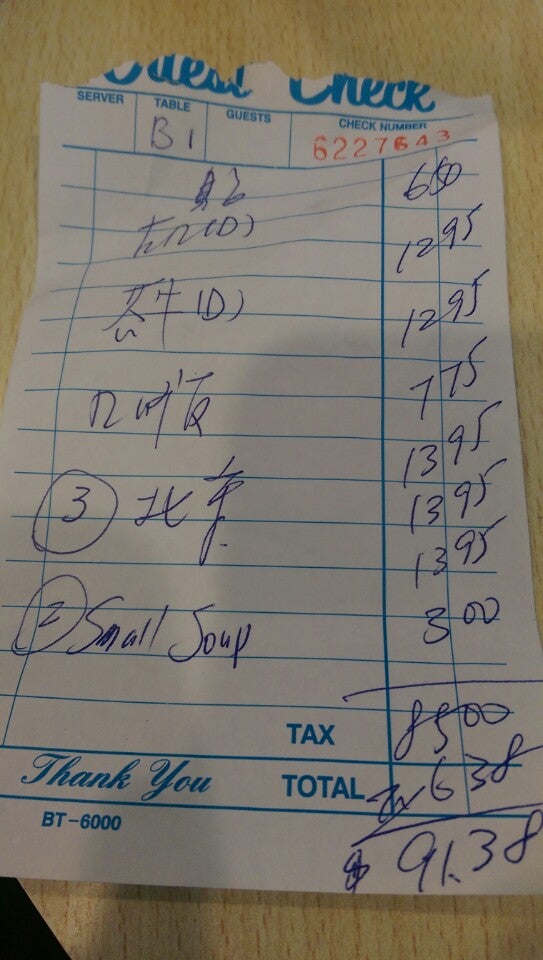 Guest Check
SERVER TABLE GUESTS CHECK NUMBER
B1 6227643
650
(D) 1295
牛(D) 1295
775
1395
③ 北京 1395
1395
② Small Soup 300
TAX 8500
Thank You TOTAL Tax 638
BT-6000
$ 91.38